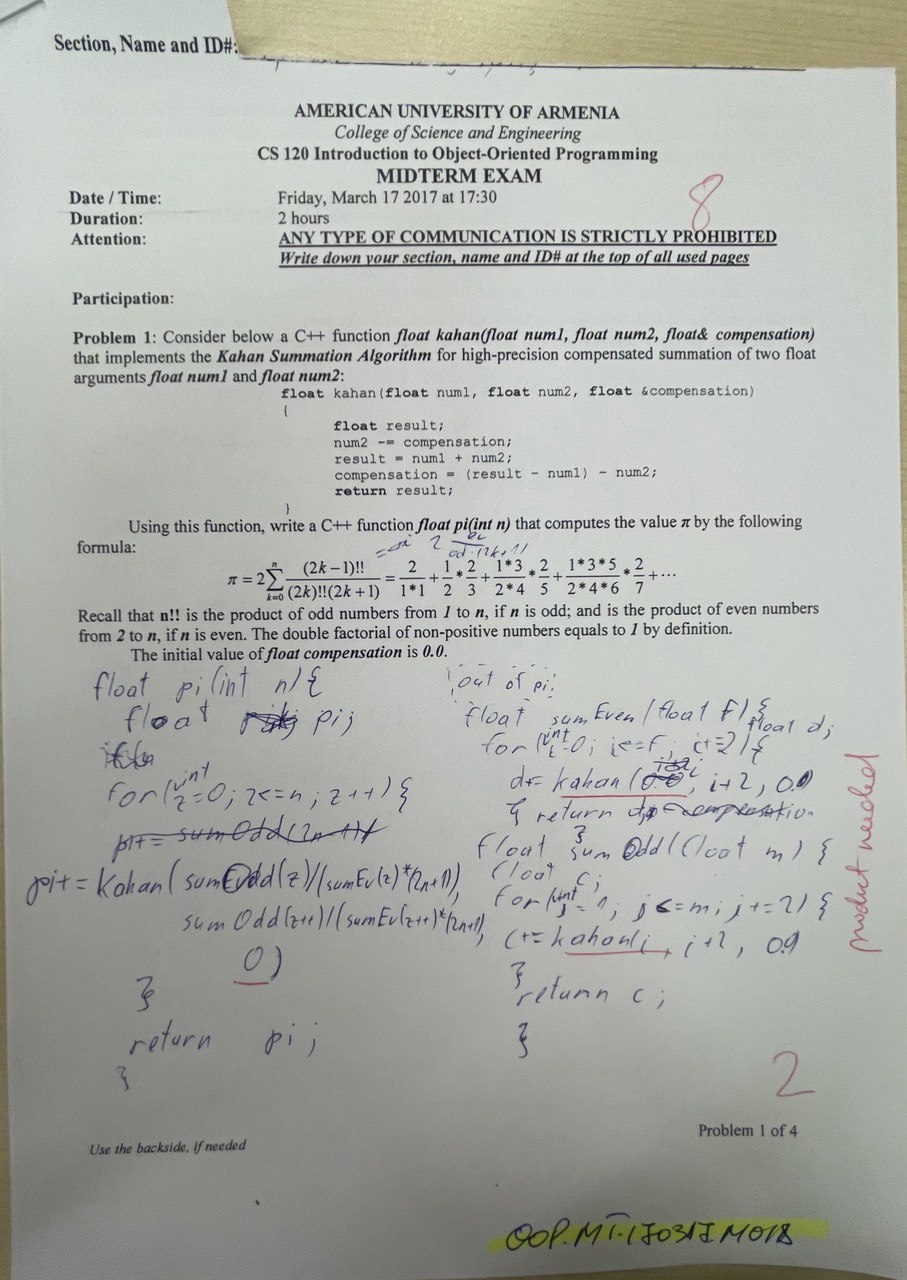 Section, Name and ID#:
AMERICAN UNIVERSITY OF ARMENIA
College of Science and Engineering
CS 120 Introduction to Object-Oriented Programming
MIDTERM EXAM
8
Date / Time: Friday, March 17 2017 at 17:30
Duration: 2 hours
Attention: ANY TYPE OF COMMUNICATION IS STRICTLY PROHIBITED
Write down your section, name and ID# at the top of all used pages
Participation:
Problem 1: Consider below a C++ function float kahan(float num1, float num2, float& compensation)
that implements the Kahan Summation Algorithm for high-precision compensated summation of two float
arguments float num1 and float num2:
float kahan(float num1, float num2, float &compensation)
{
float result;
num2 -= compensation;
result = num1 + num2;
compensation = (result - num1) - num2;
return result;
}
Using this function, write a C++ function float pi(int n) that computes the value π by the following
formula:
π = 2 ∑ₖ₌₀ⁿ (2k-1)!! / (2k)!!(2k+1) = 2/1*1 + 1/2 * 2/3 + 1*3/2*4 * 2/5 + 1*3*5/2*4*6 * 2/7 + ⋯
Recall that n!! is the product of odd numbers from 1 to n, if n is odd; and is the product of even numbers
from 2 to n, if n is even. The double factorial of non-positive numbers equals to 1 by definition.
The initial value of float compensation is 0.0.
float pi(int n){
float pi;
for(int z=0; z<=n; z++){
pi+= sumOdd(2n-1)/
pi+= Kahan( sumOdd(z)/(sumEv(z)*(2n+1)),
sumOdd(z++)/(sumEv(z++)*(2n+1)),
0)
}
return pi;
}
out of pi:
float sumEven(float f){
float d;
for(int i=0; i<=f; i+=2){
d+= kahan(i, i+2, 0.0)
} return d
}
float sumOdd(float m) {
float c;
for(int j=1; j<=m; j+=2) {
c+= kahan(j, j+2, 0.0)
}
return c;
}
product needed
2
Problem 1 of 4
Use the backside, if needed
OOP.MT.170317.M018